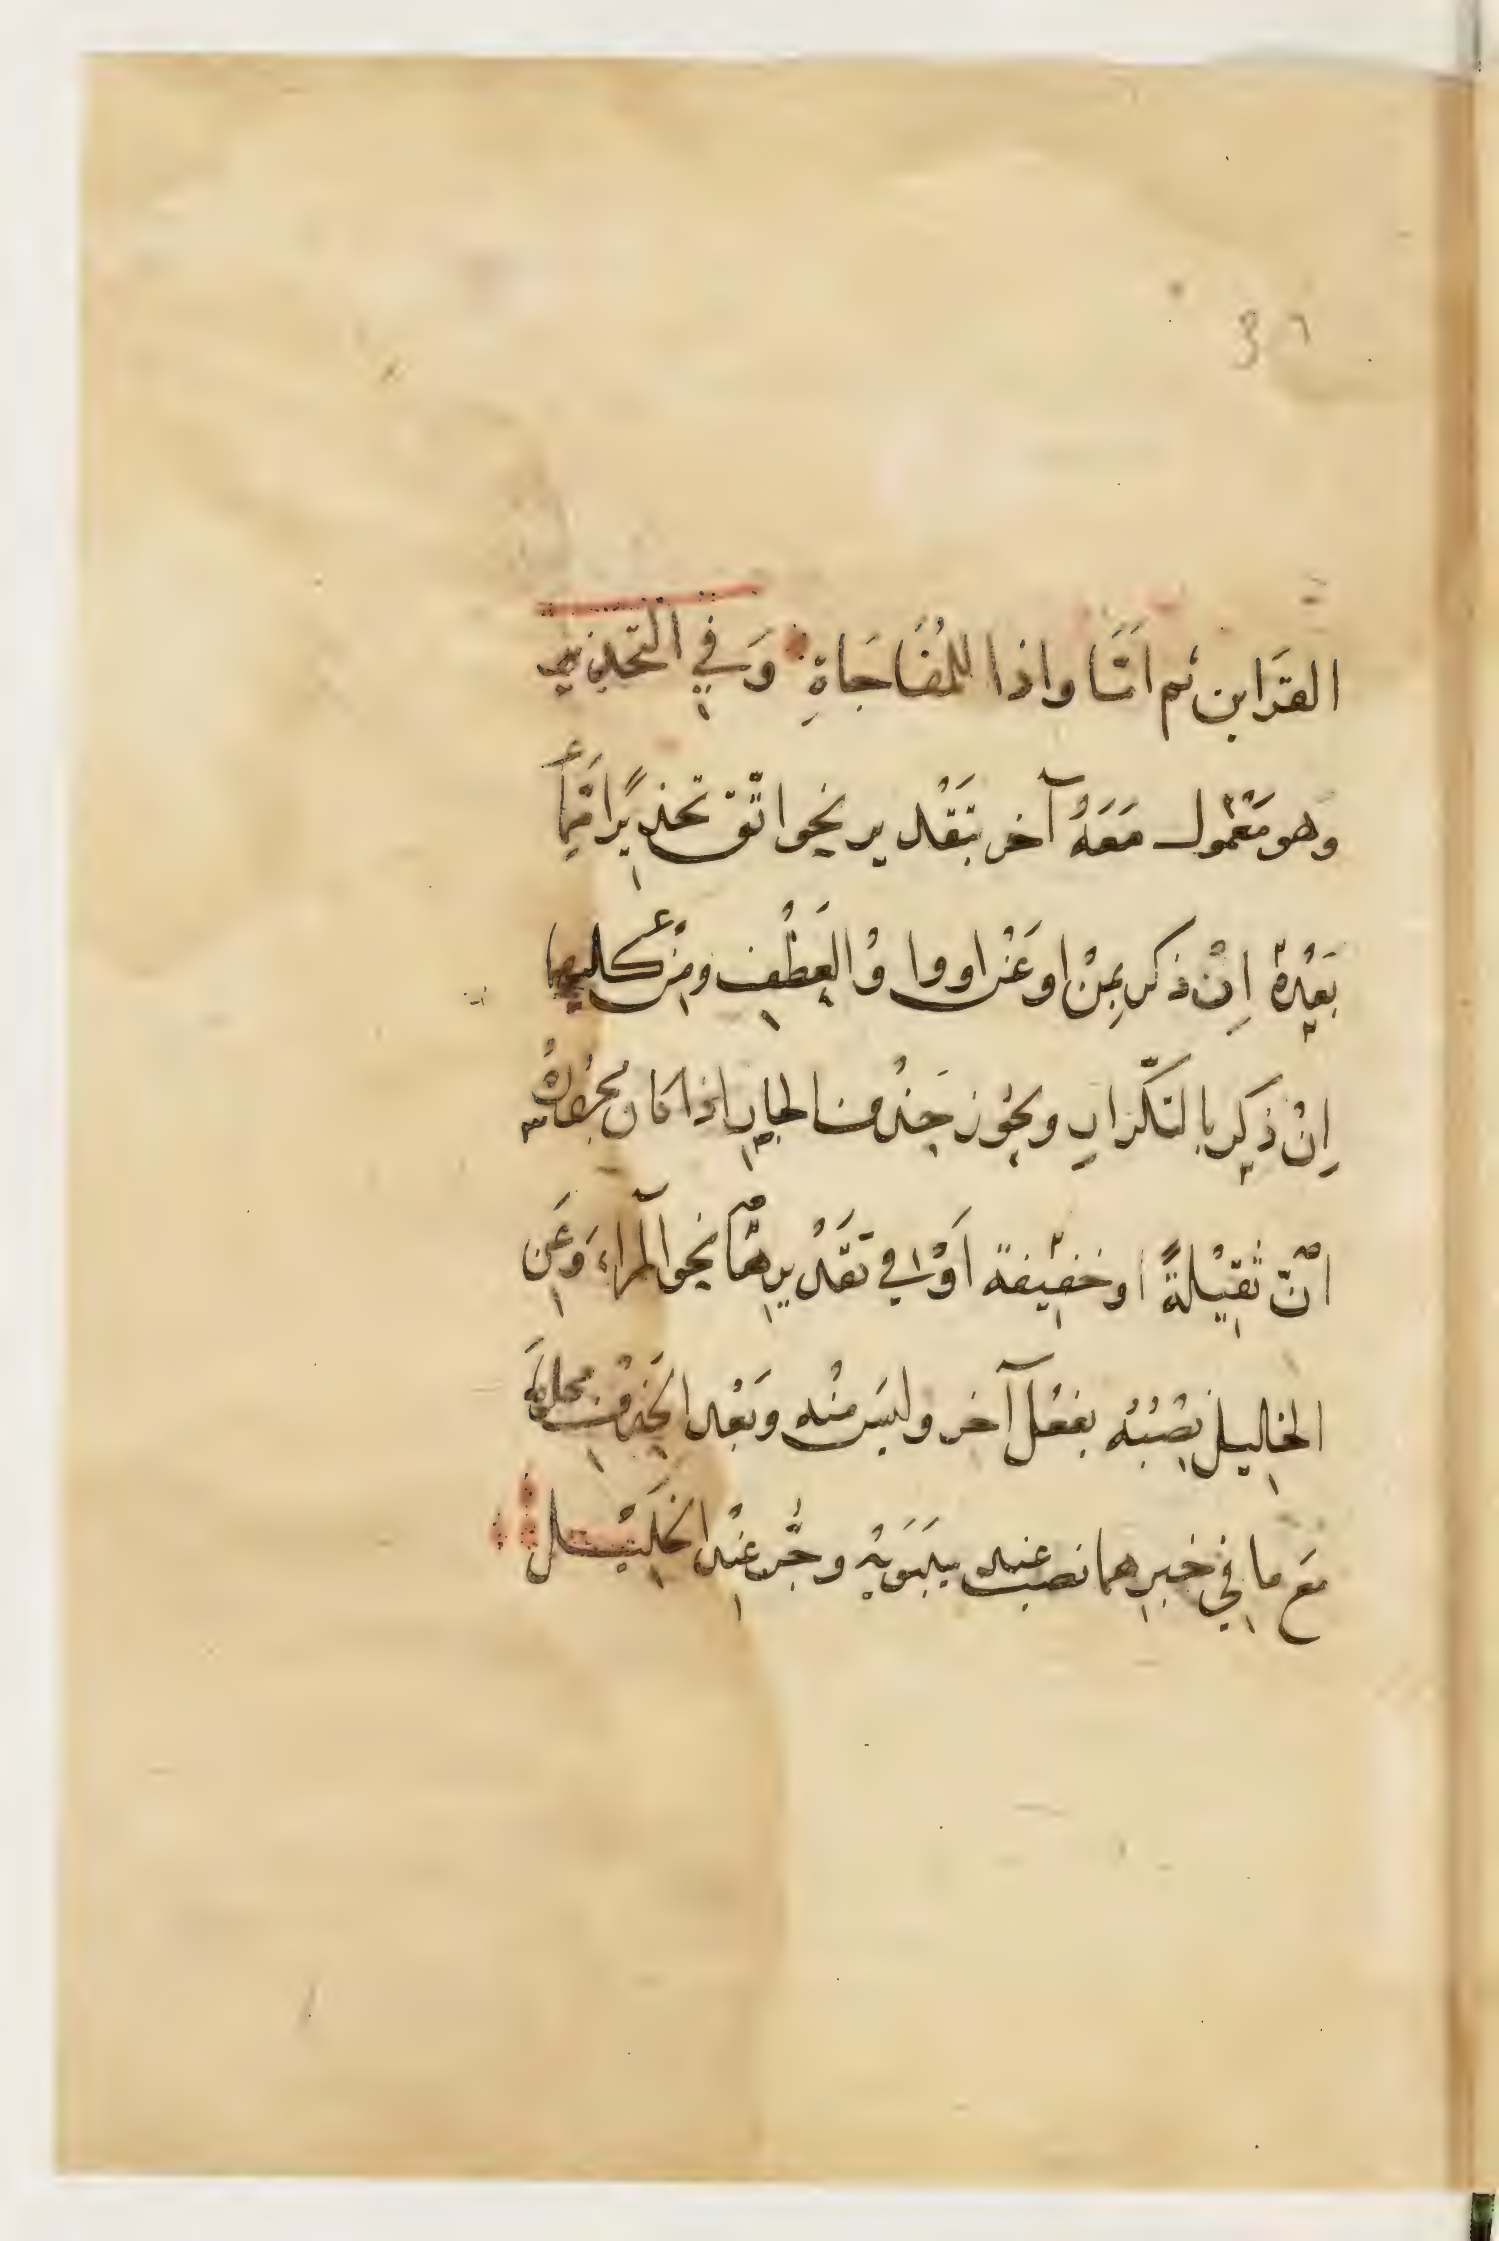 القَرَاين ثم اَمَّا واذا للمُفَاجَاةِ وَفي التّحذير
وهو مَعْمول مَعَهُ آخر بتَقْدير نحو اتّق تحذيرًا مِمَّا
بَعْدهُ اِنْ ذكر بِمِنْ او عَنْ او واوُ العَطْفِ ومِنْ كليهما
اِنْ ذكِر بالتكّرارِ ويجُوز حَذْف الجار اذا كان مجرورهُ
انّ ثقِيْلةً او خفِيْفة اَوْ في تقَدْيرِهمَا نحو المراءَ وَعَنِ
الخليل نصْبُهُ بفعْل آخر وليَس منْه وَبَعْد الحَذْف محلهَا
مَع ما في خبرهما نصب عند سيبَوَيْهِ وجَرّ عِنْد الخَلِيْل